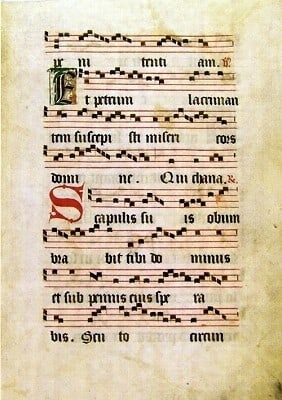 pe ni tenti am. &.
Et petrum lacriman
tem suscepi sti miseri cors
domi ne. Qui chana. &.
Scapulis su is obum
bra bit tibi do minus
et sub pennis eius spe ra
bis. Scu to circun